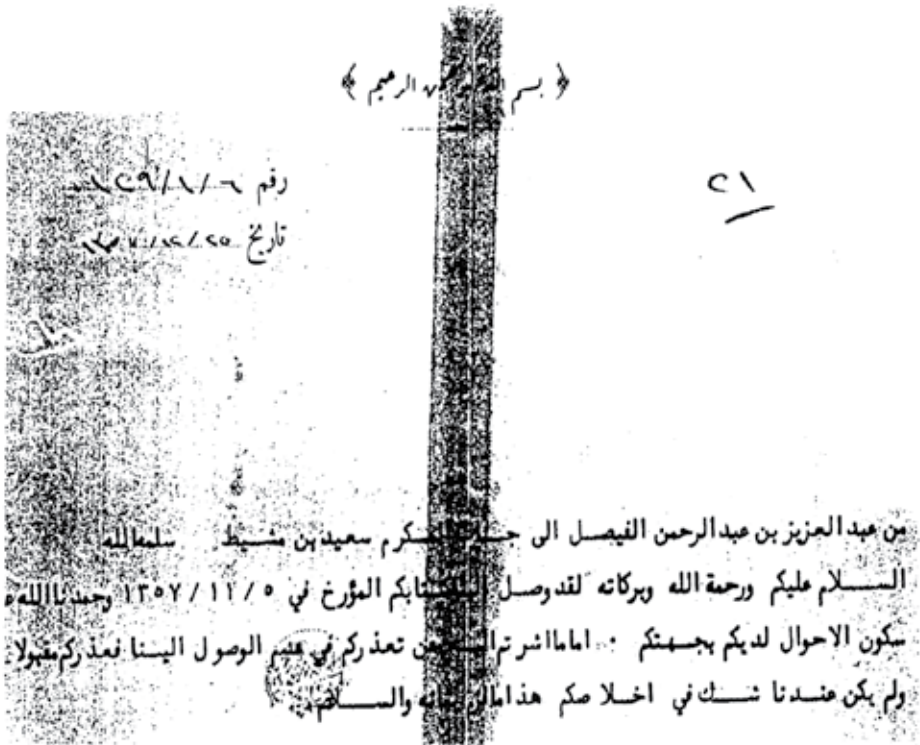 ﴿ بسم الله الرحمن الرحيم ﴾
رقم ١٢٩/١/٦
٢١
تاريخ ٢٥/١٢/
من عبد العزيز بن عبد الرحمن الفيصل الى جناب المكرم سعيد بن مشيط سلمه الله
السلام عليكم ورحمة الله وبركاته لقد وصل الينا كتابكم المؤرخ في ٥ / ١١ / ١٣٥٧ وحمدنا الله
سكون الاحوال لديكم بجهتكم ٠ اما ما اشرتم اليه من تعذركم في عدم الوصول الينا فعذركم مقبولا
ولم يكن عندنا شك في اخلاصكم هذا ما لزم بيانه والسلام